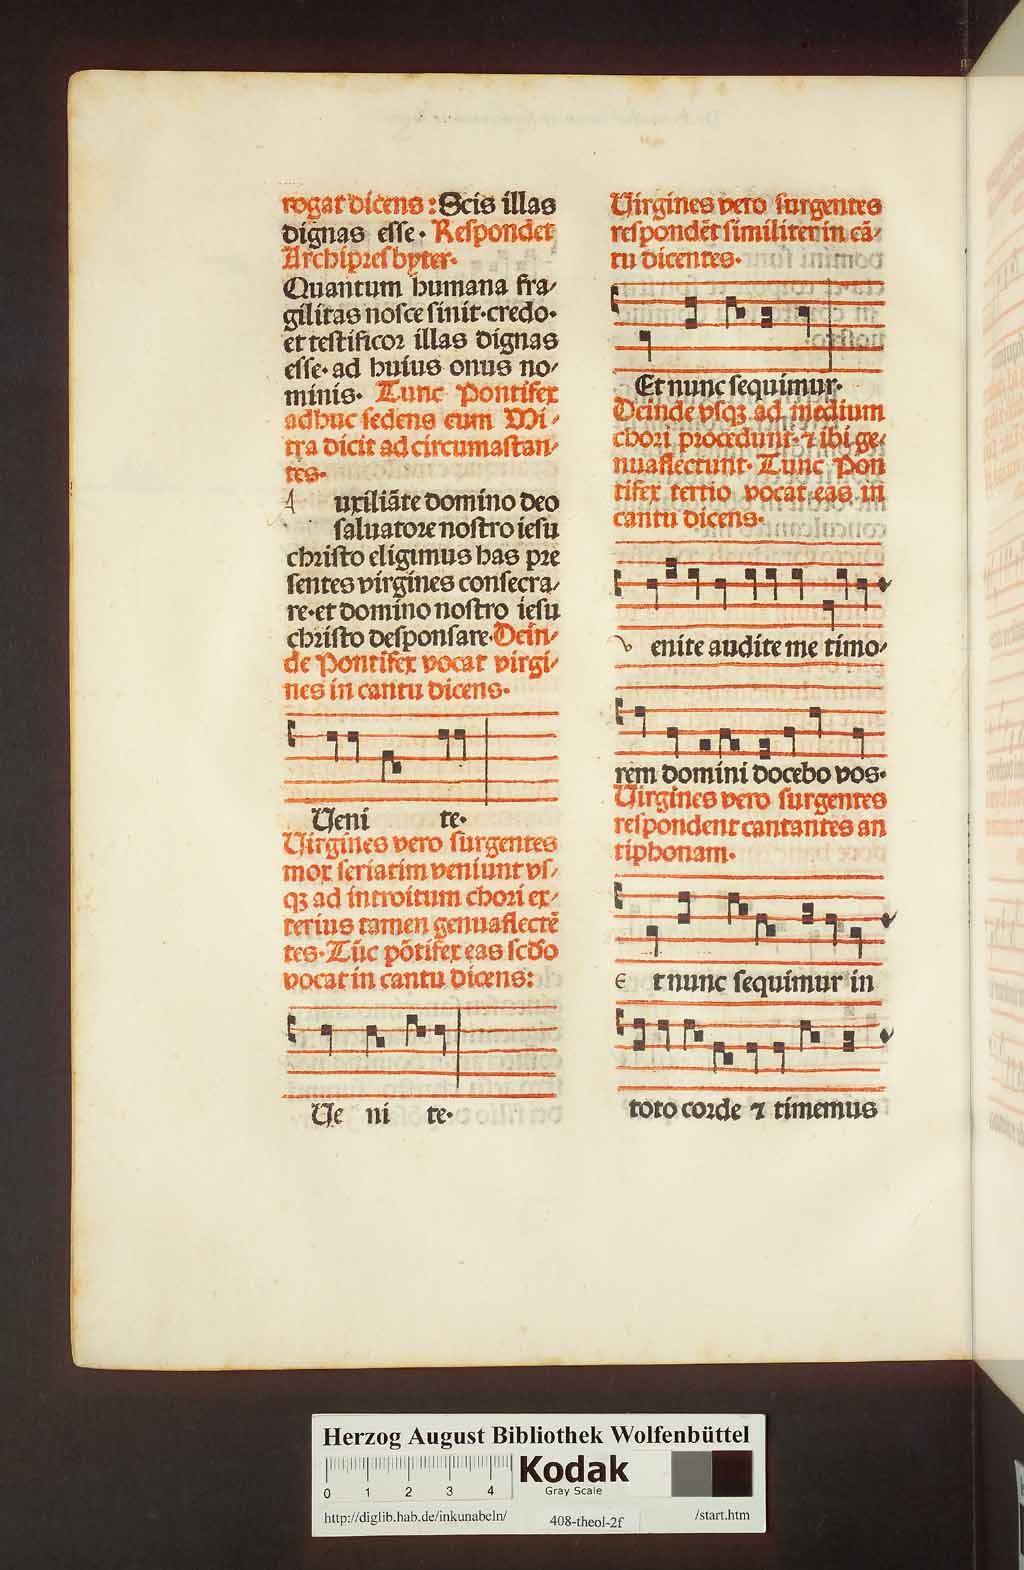 rogat dicens : Scis illas
dignas esse · Respondet
Archipresbyter·
Quantum humana fra/
gilitas nosce sinit·credo·
et testificor illas dignas
esse· ad huius onus no/
minis· Tunc Pontifex
adhuc sedens cum Mi/
tra dicit ad circumastan/
tes·
A uxiliāte domino deo
saluatore nostro iesu
christo eligimus has pre
sentes virgines consecra/
re·et domino nostro iesu
christo desponsare·Dein/
de Pontifex vocat virgi/
nes in cantu dicens·
Veni te·
Virgines vero surgentes
mox seriatim veniunt vs/
qꝫ ad introitum chori ex/
terius tamen genuaflectē
tes·Tūc pōtifex eas scd̄o
vocat in cantu dicens:
Ve ni te·
Virgines vero surgentes
respondēt similiter in cā/
tu dicentes·
Et nunc sequimur·
Deinde vsqꝫ ad medium
chori procedunt·⁊ ibi ge/
nuaflectunt· Tunc Pon
tifex tertio vocat eas in
cantu dicens·
v enite audite me timo/
rem domini docebo vos·
Virgines vero surgentes
respondent cantantes an
tiphonam·
E t nunc sequimur in
toto corde ⁊ timemus
Herzog August Bibliothek Wolfenbüttel
0 1 2 3 4
Kodak
Gray Scale
http://diglib.hab.de/inkunabeln/ 408-theol-2f /start.htm